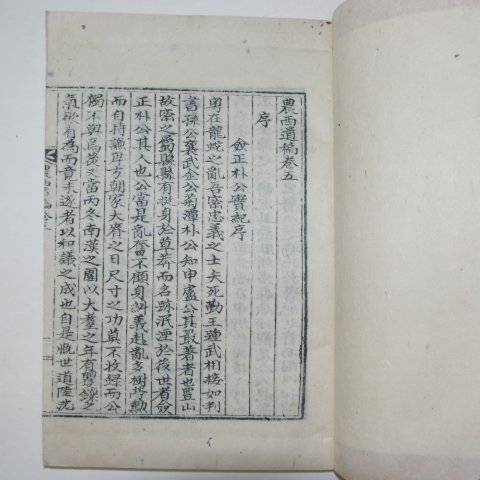 農西遺稿卷五
序
僉正朴公實紀序
粤在龍蛇之亂吾密忠義之士矢死勤王踵武相接如判
書孫公襄武金公菊潭朴公知申盧公其最著者也豊山
故密之屬縣縣有挺身於草莽而名跡泯湮於後世者僉
正朴公其人也公當是亂奮不顧身糾義赴亂多樹摧勳
而自持謙卑方朝家大賚之日尺寸之功莫不收錄而公
獨不與焉後又當丙冬南漢之圍以大耋之年有
氣欲有爲而竟未遂者以和議之成也自是慨世道陸沈